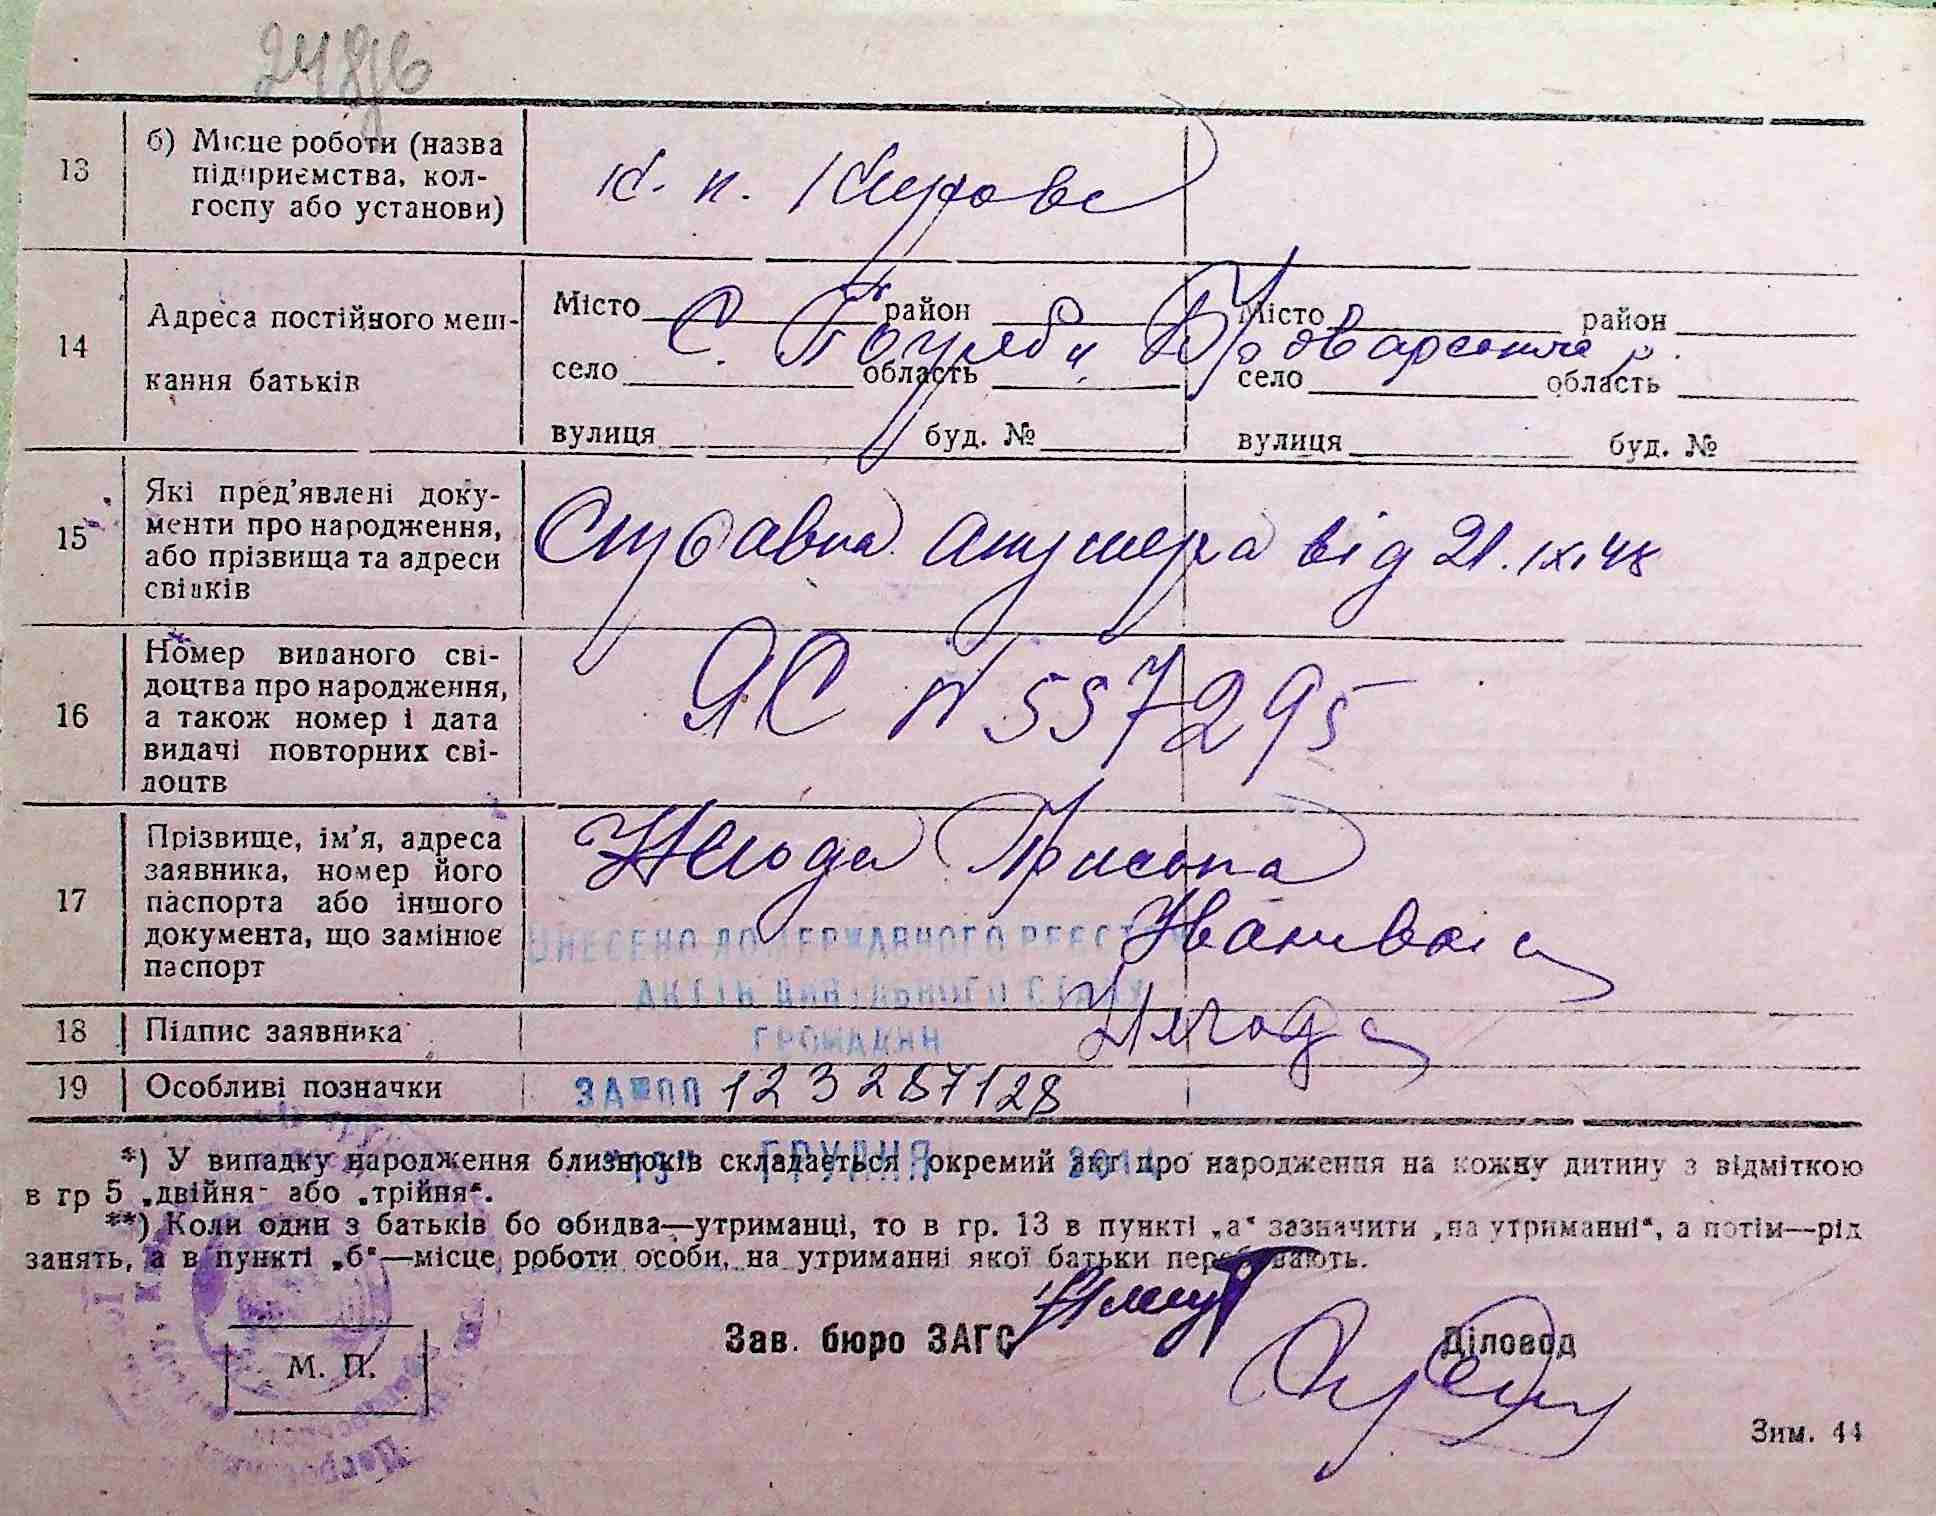 13 б) Місце роботи (назва
підприємства, кол-
госпу або установи)
к. п. Кирова
14 Адреса постійного меш-
кання батьків
Місто район Місто район
с. Погреби Броварського р.
село область село область
вулиця буд. № вулиця буд. №
15 Які пред'явлені доку-
менти про народження,
або прізвища та адреси
свідків
Справка акушера від 21.IX.48
16 Номер виданого сві-
доцтва про народження,
а також номер і дата
видачі повторних сві-
доцтв
ЯС N 557295
17 Прізвище, ім'я, адреса
заявника, номер його
паспорта або іншого
документа, що замінює
паспорт
Ивановна
ВНЕСЕНО ДО ДЕРЖАВНОГО РЕЄСТРУ
АКТІВ ЦИВІЛЬНОГО СТАНУ
ГРОМАДЯН
18 Підпис заявника
19 Особливі позначки
ЗА № 00 123287128
"15" ГРУДНЯ
*) У випадку народження близнюків складається окремий акт про народження на кожну дитину з відміткою
в гр 5 „двійня" або „трійня".
**) Коли один з батьків бо обидва—утриманці, то в гр. 13 в пункті „а" зазначити „на утриманні", а потім—рід
занять, а в пункті „б"—місце роботи особи, на утриманні якої батьки перебувають.
Зав. бюро ЗАГС Діловод
М. П.
Зим. 44